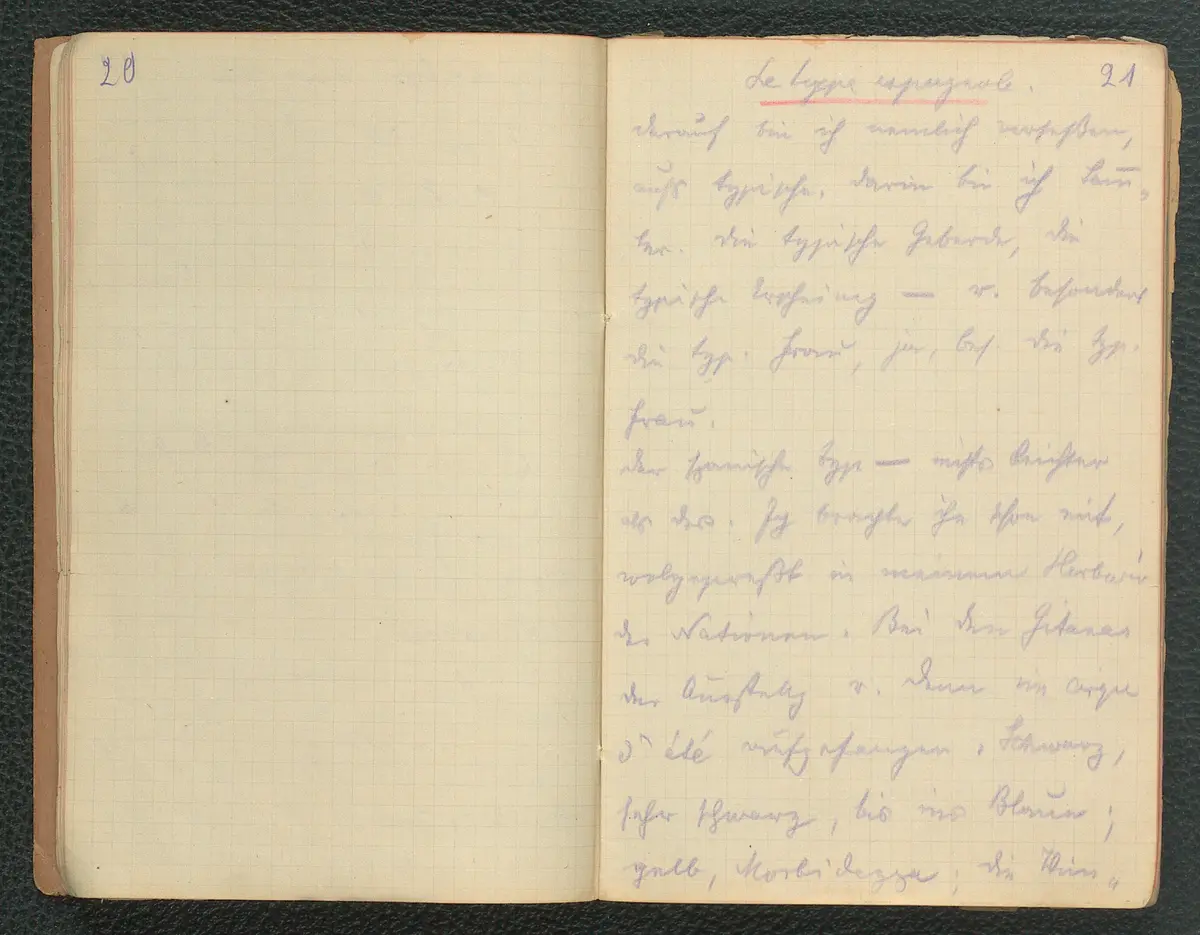 20
21
Le type espagnole.
darauf bin ich nemlich versessen,
aufs typische. darin bin ich Sam̅-
ler. Die typische Geberde, die
typische Erscheinung — u. besonders
die typ. Frau, ja, bes. die typ.
Frau.
der spanische Typ — nichts leichter
als das. Ich brachte ihn schon mit,
wolgepreßt in meinem Herbarium
der Nationen. Bei den Gitanas
der Ausstellg u. dann im cirque
d'été aufgefangen. Schwarz,
sehr schwarz, bis ins Blaue;
gelb, Morbidezza; die Wim-